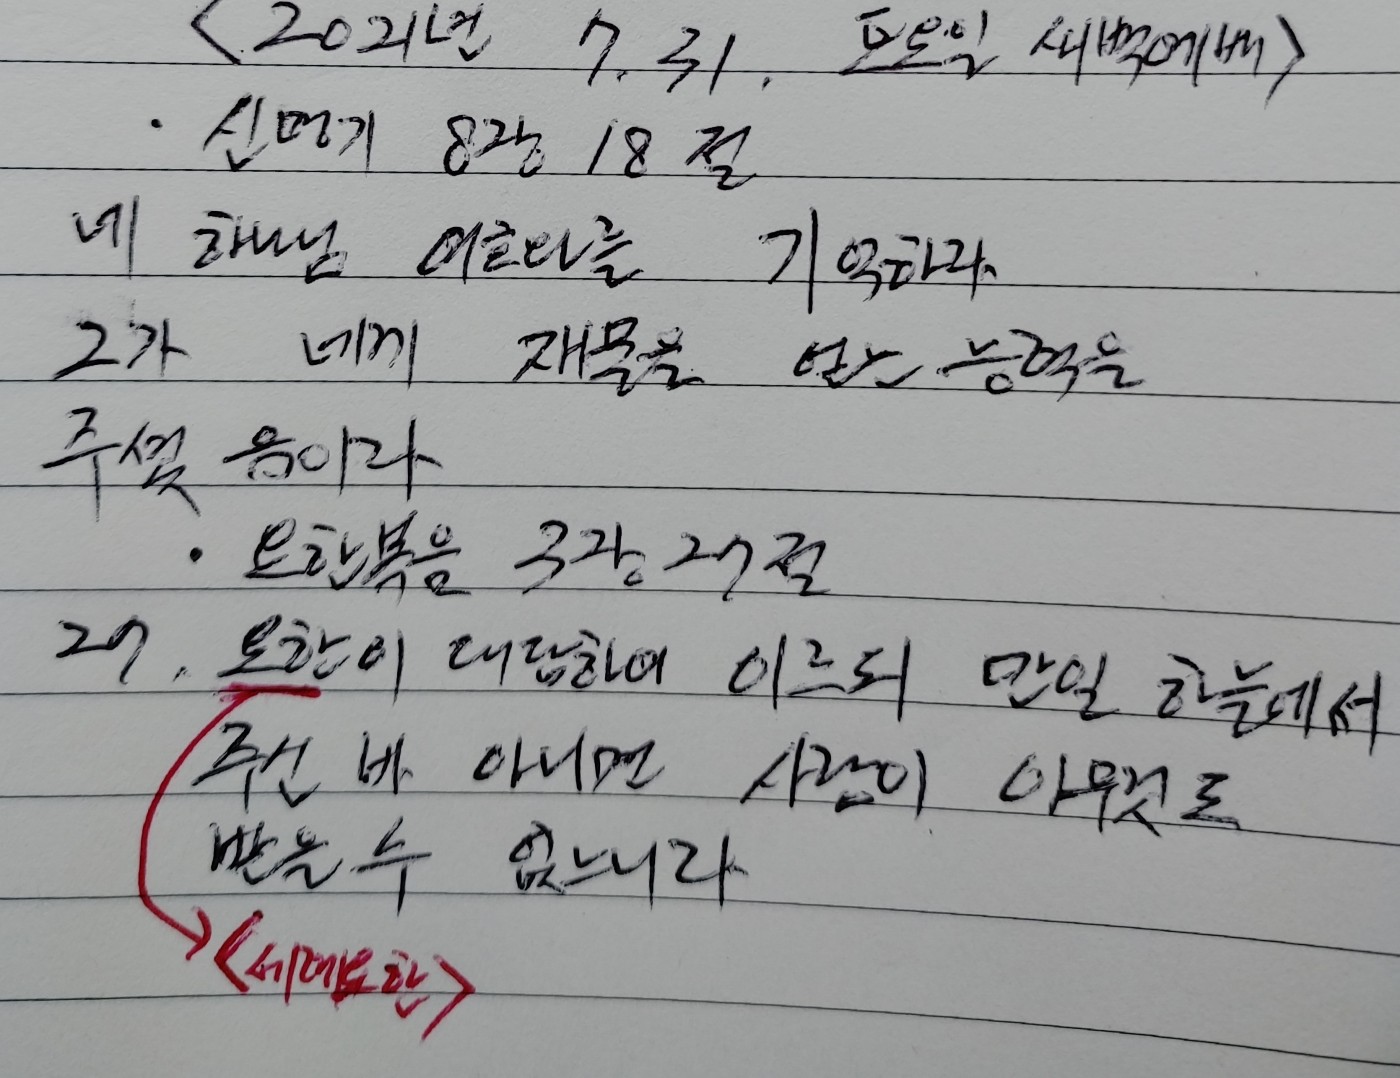 <2021년 7. 31. 토요일 새벽예배>
· 신명기 8장 18절
네 하나님 여호와를 기억하라
그가 네게 재물을 얻는 능력을
주셨음이라
· 요한복음 3장 27절
27. 요한이 대답하여 이르되 만일 하늘에서
주신 바 아니면 사람이 아무것도
받을 수 없느니라
<세례요한>